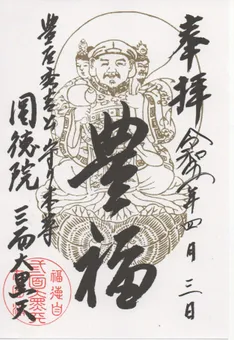 奉拝
令和 年四月三日
豊福
豊臣秀吉公 守り本尊
圓徳院
三面大黒天
福徳自